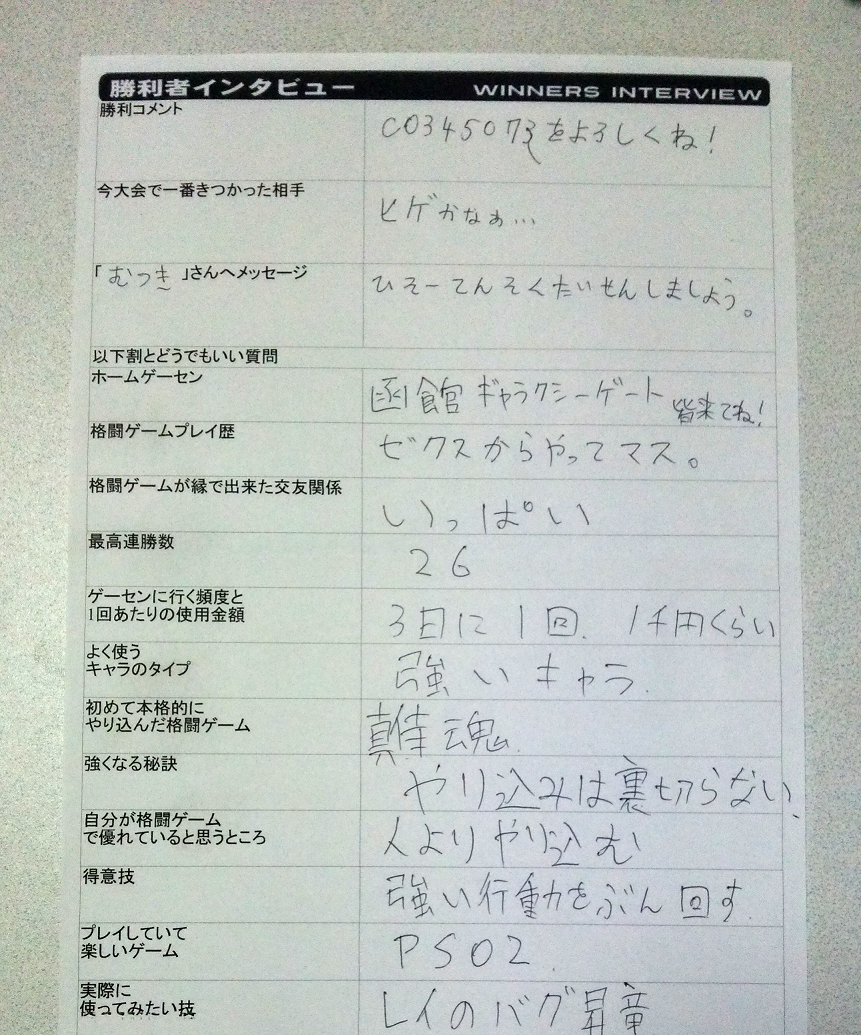 勝利者インタビュー WINNERS INTERVIEW
勝利コメント
をよろしくね!
今大会で一番きつかった相手
ヒゲかなぁ…
「むつき」さんへメッセージ
ひそーてんそくたいせんしましょう。
以下割とどうでもいい質問
ホームゲーセン
函館ギャラクシーゲート 皆来てね!
格闘ゲームプレイ歴
ゼクスからやってマス。
格闘ゲームが縁で出来た交友関係
いっぱい
最高連勝数
26
ゲーセンに行く頻度と
1回あたりの使用金額
3日に1回. 1千円くらい
よく使う
キャラのタイプ
強いキャラ.
初めて本格的に
やり込んだ格闘ゲーム
真侍魂
強くなる秘訣
やり込みは裏切らない.
自分が格闘ゲーム
で優れていると思うところ
人よりやり込む
得意技
強い行動をぶん回す.
プレイしていて
楽しいゲーム
PSO2.
実際に
使ってみたい技
レイのバグ昇竜